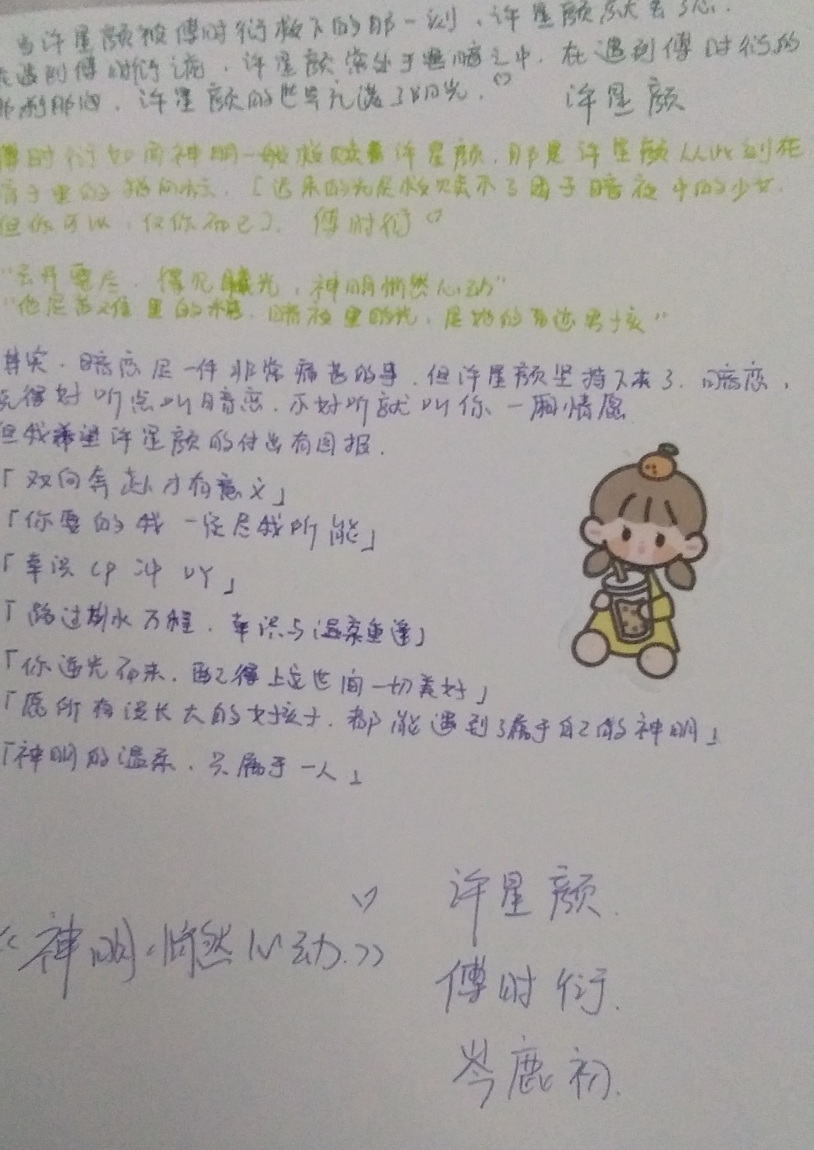 当许星颜被傅时衍救下的那一刻，许星颜就丢了心.
在遇到傅时衍前，许星颜常处于黑暗之中，在遇到傅时衍的
那刹那间，许星颜的世界充满了阳光.♡ 许星颜
傅时衍如同神明一般救赎许星颜，那是许星颜从此刻在
骨子里的，「迟来的光是救赎不了困于暗夜中的少女.
但你可以，仅你而已」. 傅时衍♡
"云开雾尽，得见曦光，神明悄然心动"
"他是苦难里的糖，暗夜里的光，是她的身边男孩"
其实，暗恋是一件非常痛苦的事，但许星颜坚持下来了. 暗恋，
说得好听点叫暗恋，不好听就叫你一厢情愿.
但我希望许星颜的付出有回报.
「双向奔赴才有意义」
「你要的我一定尽我所能」
「幸识CP冲吖」
「路过山水万程，幸识与温柔重逢」
「你逆光而来，配得上这世间一切美好」
「愿所有没长大的女孩子，都能遇到了属于自己的神明」
「神明的温柔，只属于一人」
♡ 许星颜.
《神明·悄然心动.》
傅时衍.
岑鹿初.